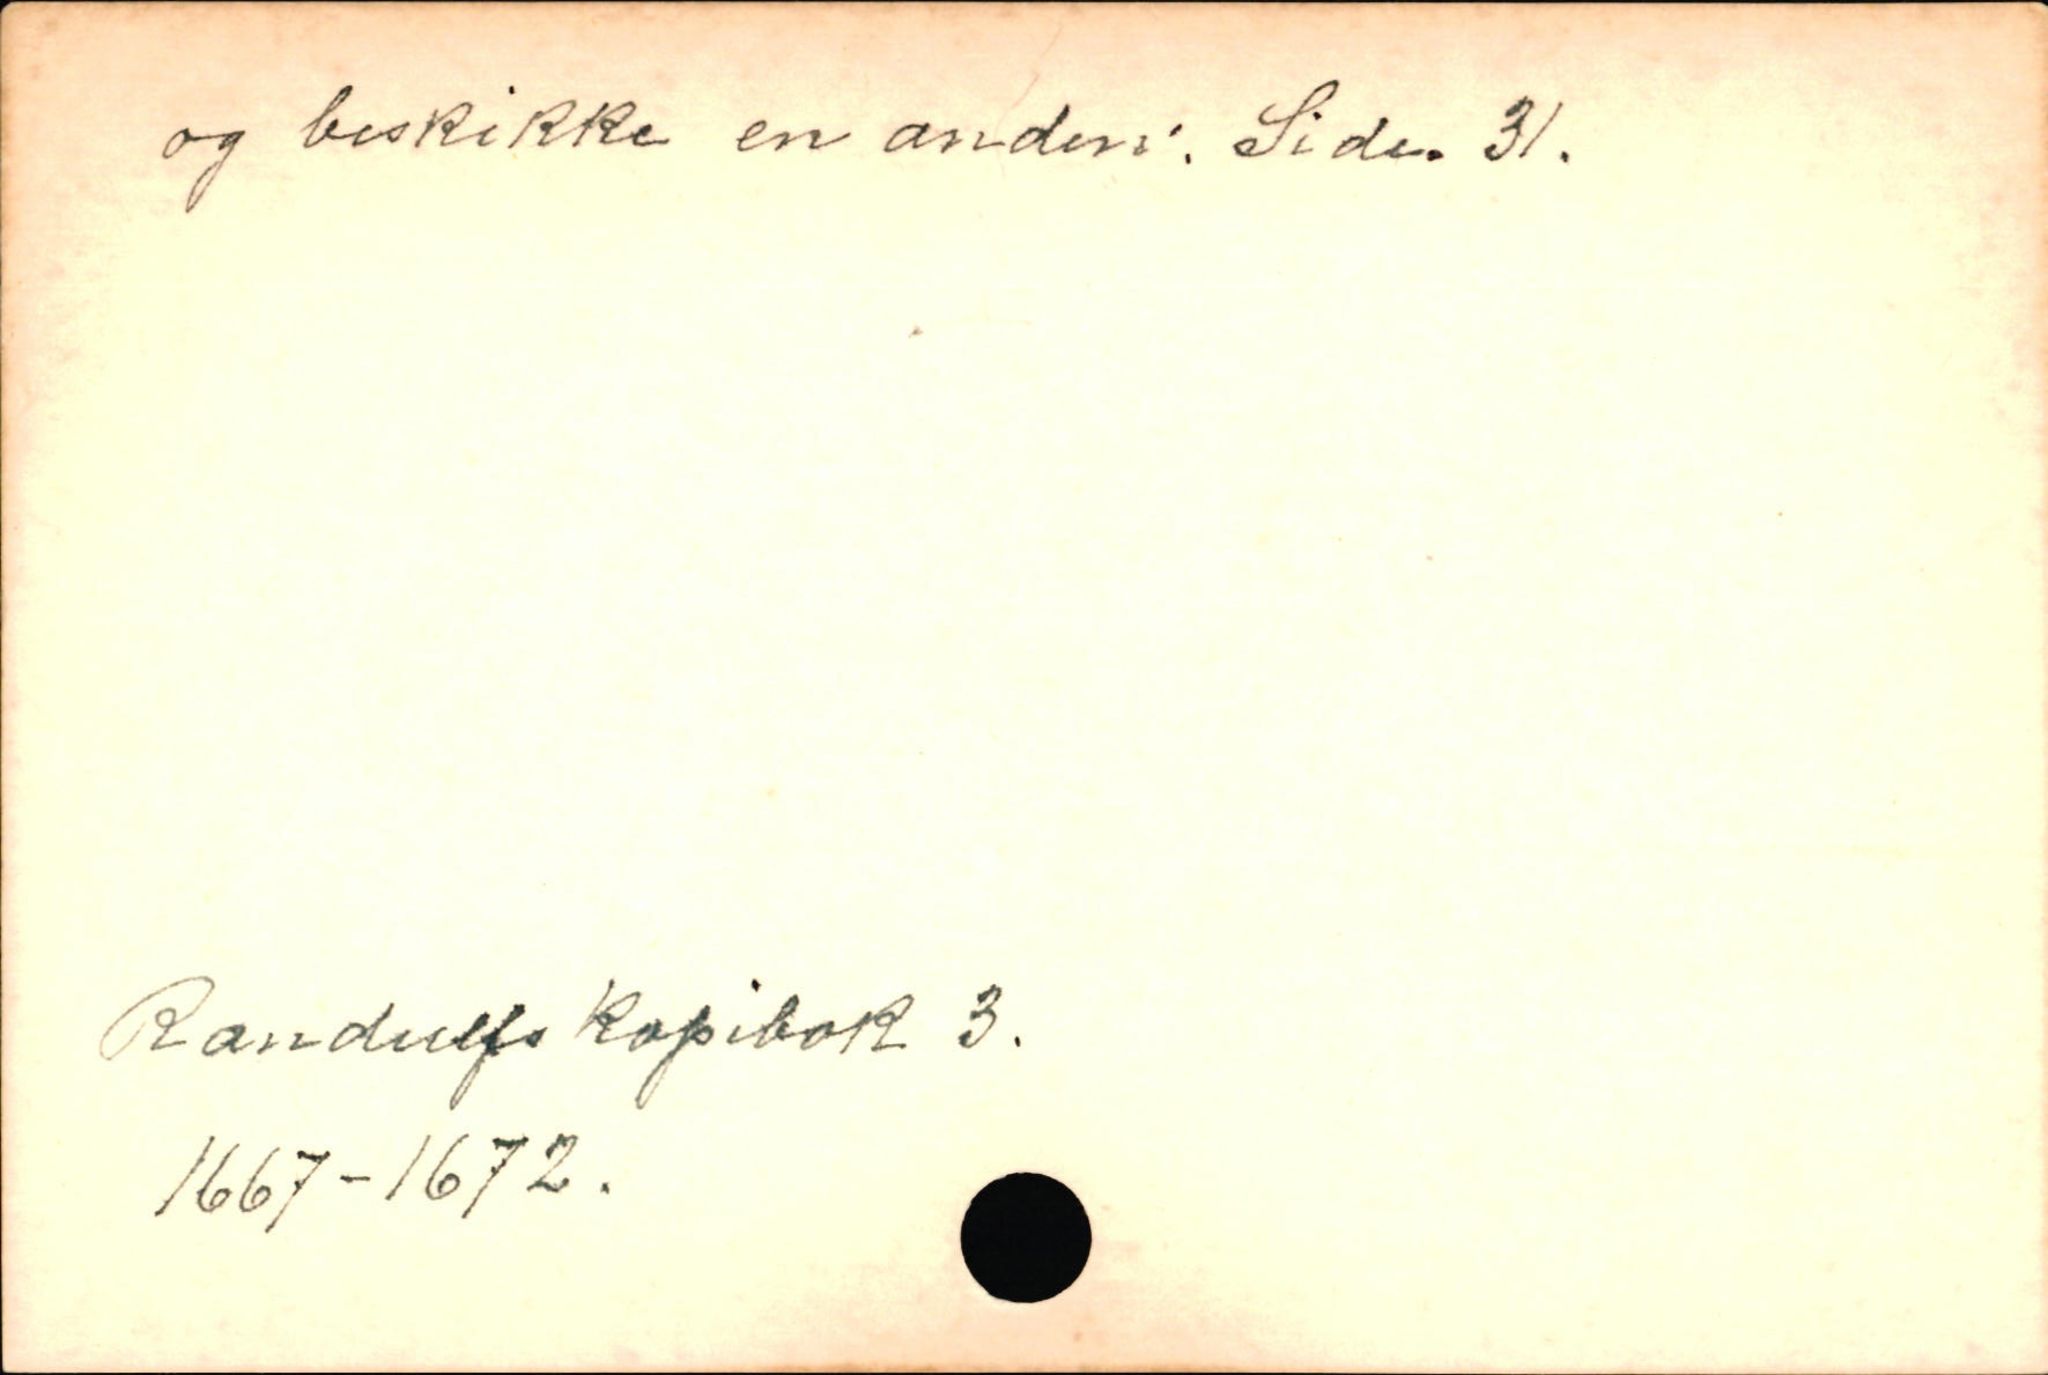 og beskikke en anden'. Side. 31.
Randulfs Kopibok 3.
1667-1672.